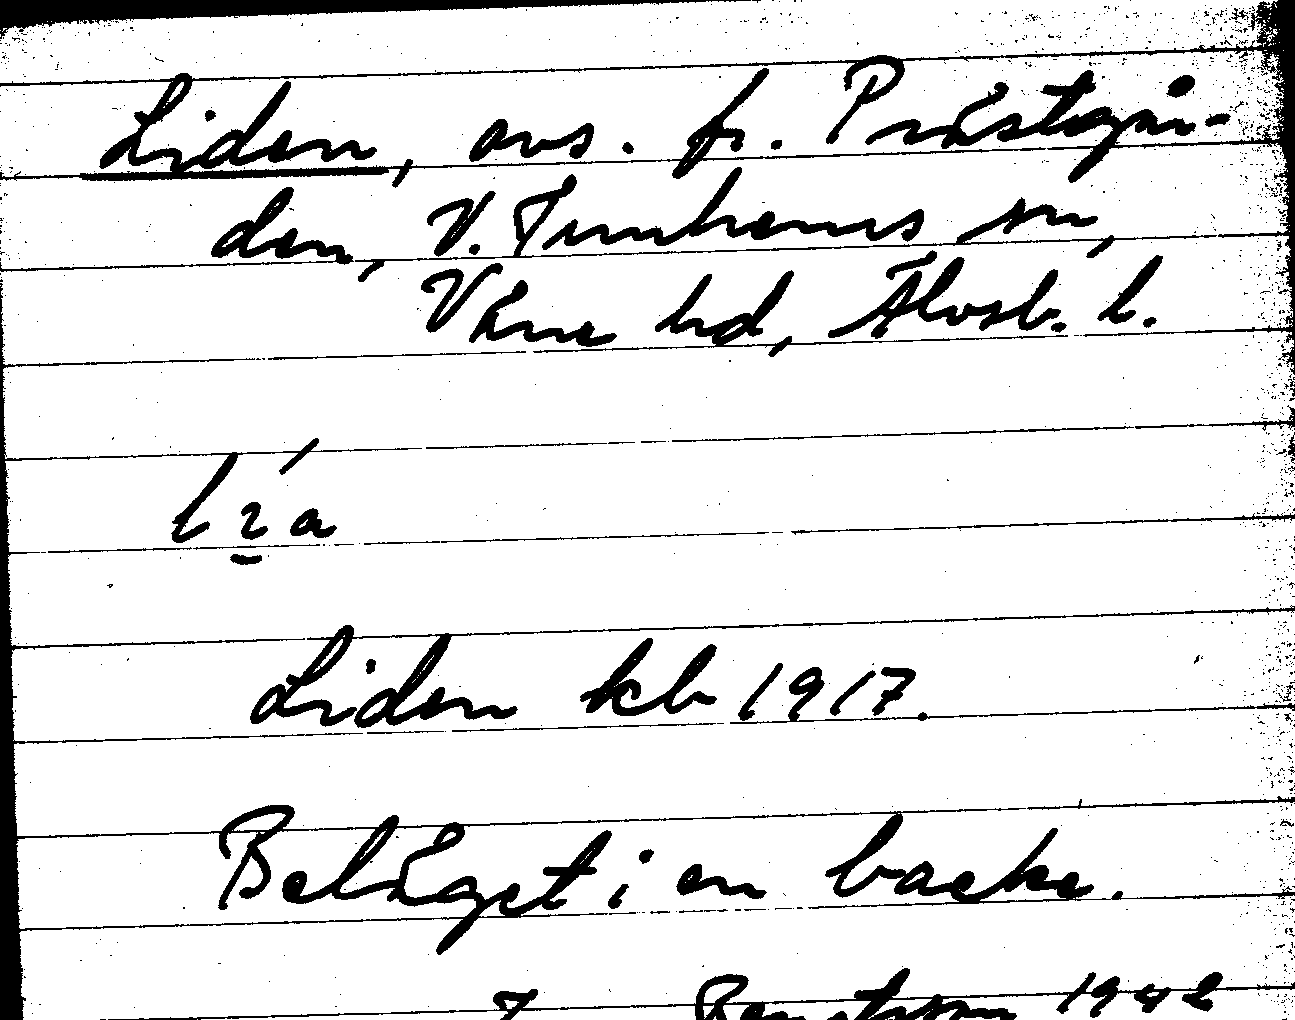 Liden, avs. fr. Prästgår-
den, V. Tunhems sn,
Väne hd, Älvsb. l.
Liden kb 1917.
Beläget i en backe.
1942